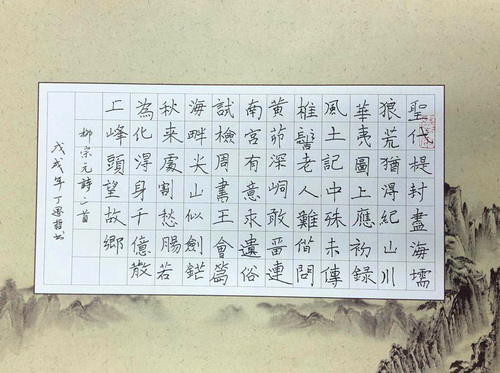 聖代提封盡海壖
狼荒猶得紀山川
華夷圖上應初錄
風土記中殊未傳
椎髻老人難借問
黃茆深峒敢畱連
南宮有意求遺俗
試檢周書王會篇
海畔尖山似劍鋩
秋來處割愁腸若
為化得身千億散
上峰頭望故鄉
柳宗元詩二首
戊戌年丁书